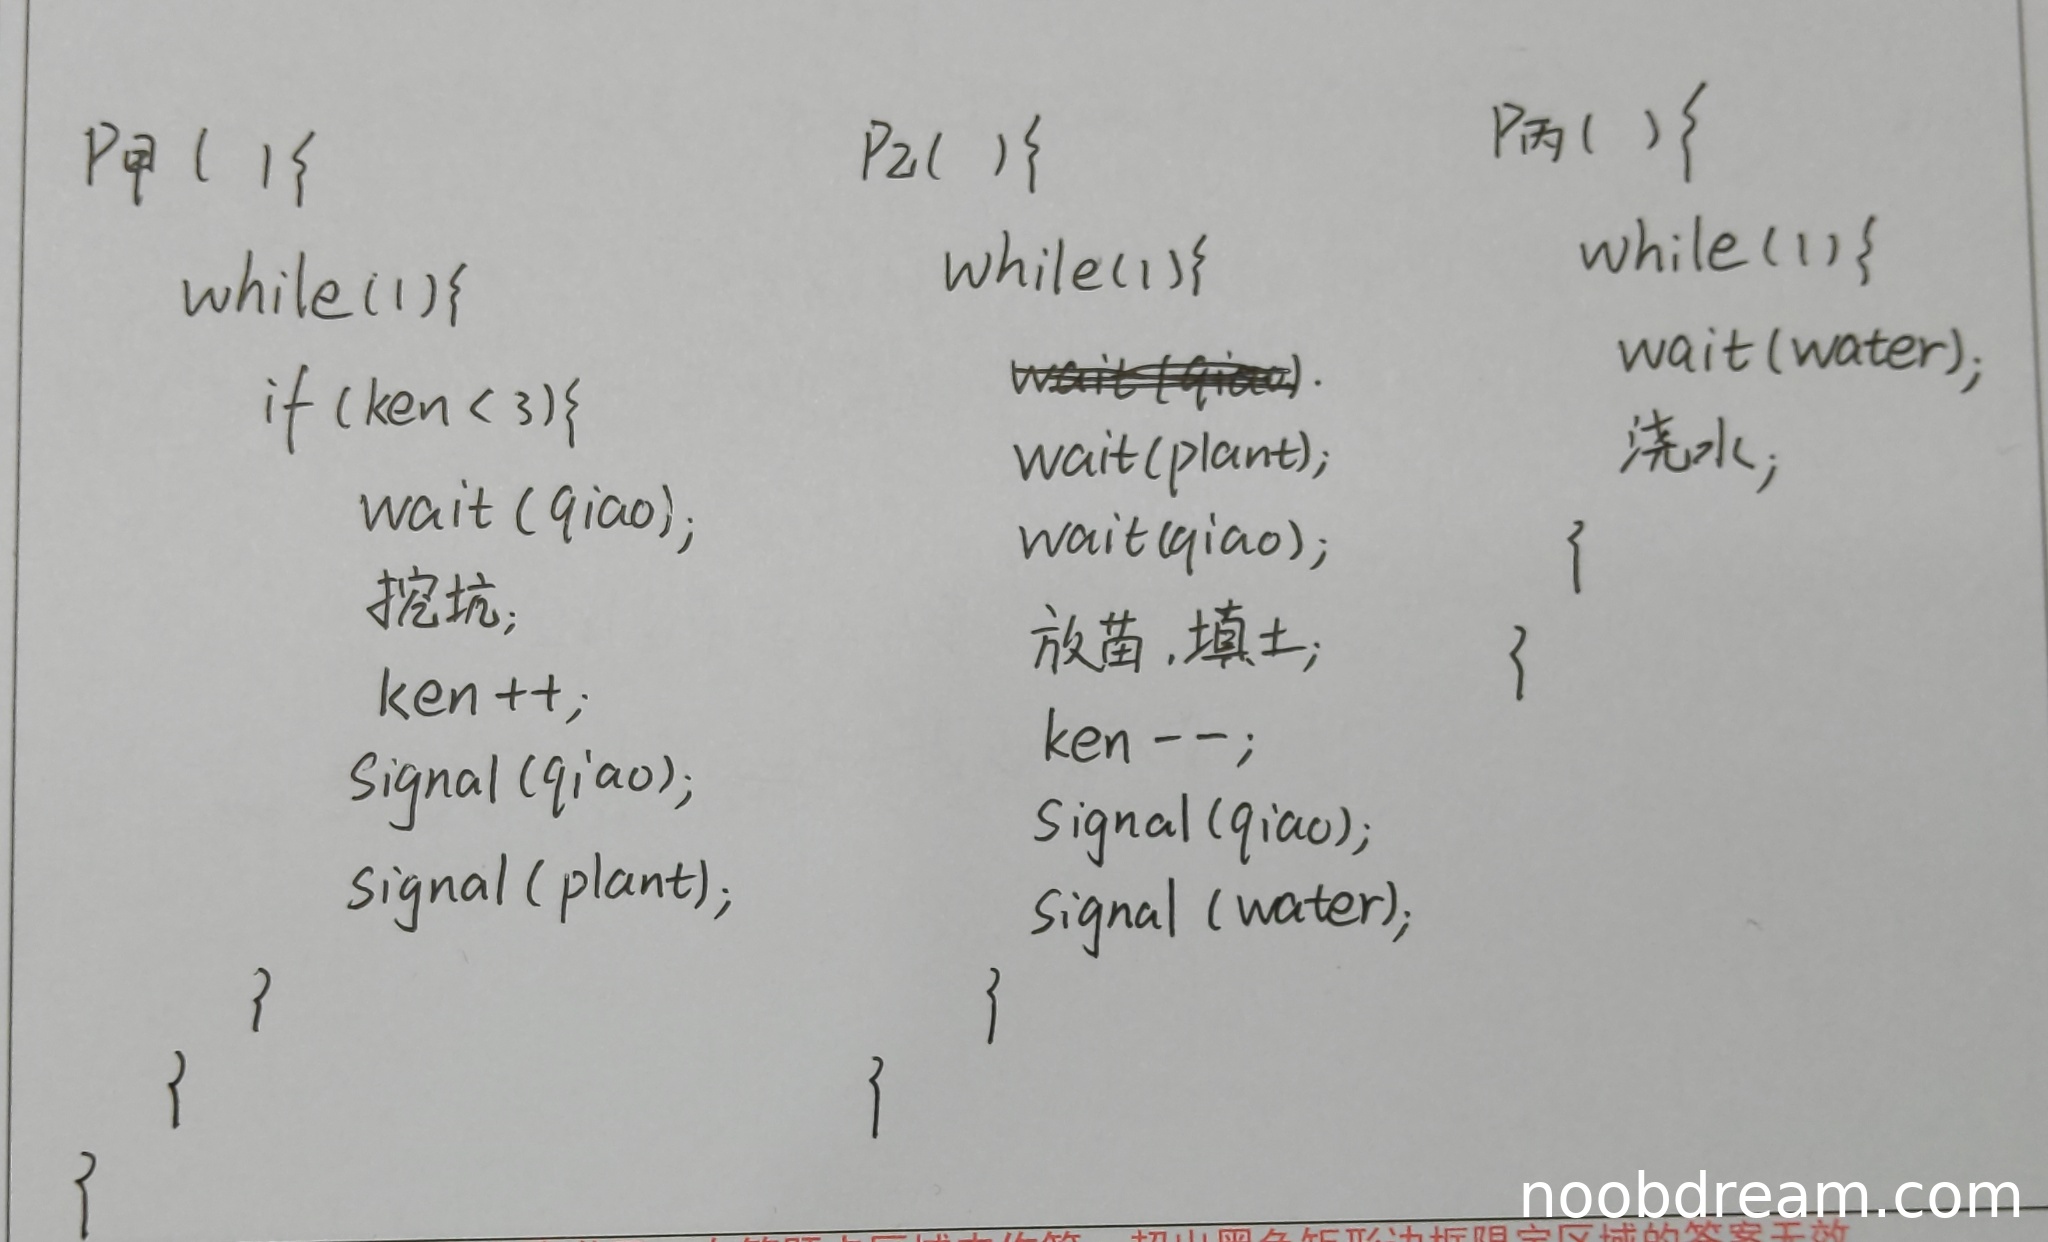 P甲 ( ) {
while(1){
if (ken < 3){
wait (qiao);
挖坑;
ken ++;
Signal (qiao);
Signal (plant);
}
}
}
P乙( ) {
while(1){
wait(plant);
wait(qiao);
放苗,填土;
ken --;
Signal (qiao);
Signal (water);
}
}
P丙( ) {
while (1) {
wait (water);
浇水;
}
}
noobdream.com